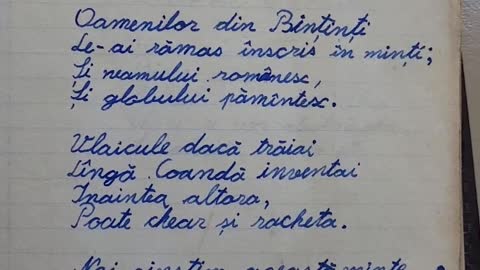 Oamenilor din Bințință
Le-ai rămas înscris în minți;
Și neamului românesc,
Și globului pămîntesc.
Vlaicule dacă trăiai
Lîngă Coandă inventai
Înaintea altora,
Poate chear și racheta.
Noi cinstim această minte